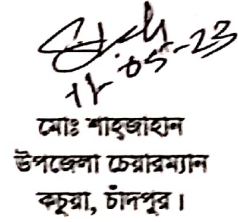 -05-23
মোঃ শাহজাহান
উপজেলা চেয়ারম্যান
কচুয়া, চাঁদপুর।